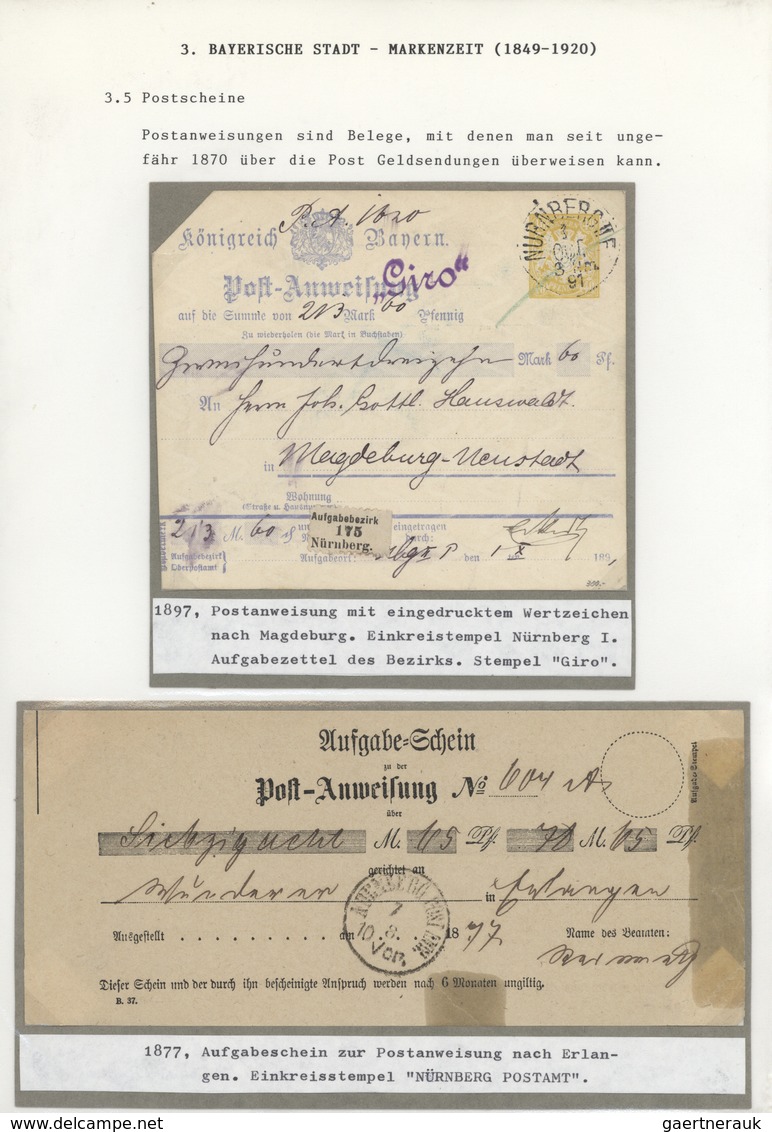 3. BAYERISCHE STADT - MARKENZEIT (1849-1920)
3.5 Postscheine
Postanweisungen sind Belege, mit denen man seit unge-
fähr 1870 über die Post Geldsendungen überweisen kann.
P.A. 1820
Königreich Bayern.
Post-Anweisung
„Giro“
NÜRNBERG
auf die Summe von 213 Mark 60 Pfennig
Zu wiederholen (die Mark in Buchstaben)
Zweihundertdreizehn Mark 60 Pf.
An Herrn Joh. Gottl. Hauswaldt.
in Magdeburg-Neustadt
Wohnung
(Straße u.
213 M. 60
Aufgabebezirk
175
Nürnberg.
eingetragen
durch:
Aufgabebezirk
Oberpostamt
Aufgabeort:
den 1 X 189
300.-
1897, Postanweisung mit eingedrucktem Wertzeichen
nach Magdeburg. Einkreistempel Nürnberg I.
Aufgabezettel des Bezirks. Stempel "Giro".
Aufgabe-Schein
zu der
Post-Anweisung No 604
Aufgabe-Stempel
über
Siebzigacht M. 65 Pf. 78 M. 65 Pf.
gerichtet an
Wunderer in Erlangen
NÜRNBERG
7
8.
10 Vor.
Ausgestellt . . . . . . . . . . am 1877 Name des Beamten:
Dieser Schein und der durch ihn bescheinigte Anspruch werden nach 6 Monaten ungiltig.
B. 37.
1877, Aufgabeschein zur Postanweisung nach Erlan-
gen. Einkreisstempel "NÜRNBERG POSTAMT".
www.delcampe.net
gaertnerauk